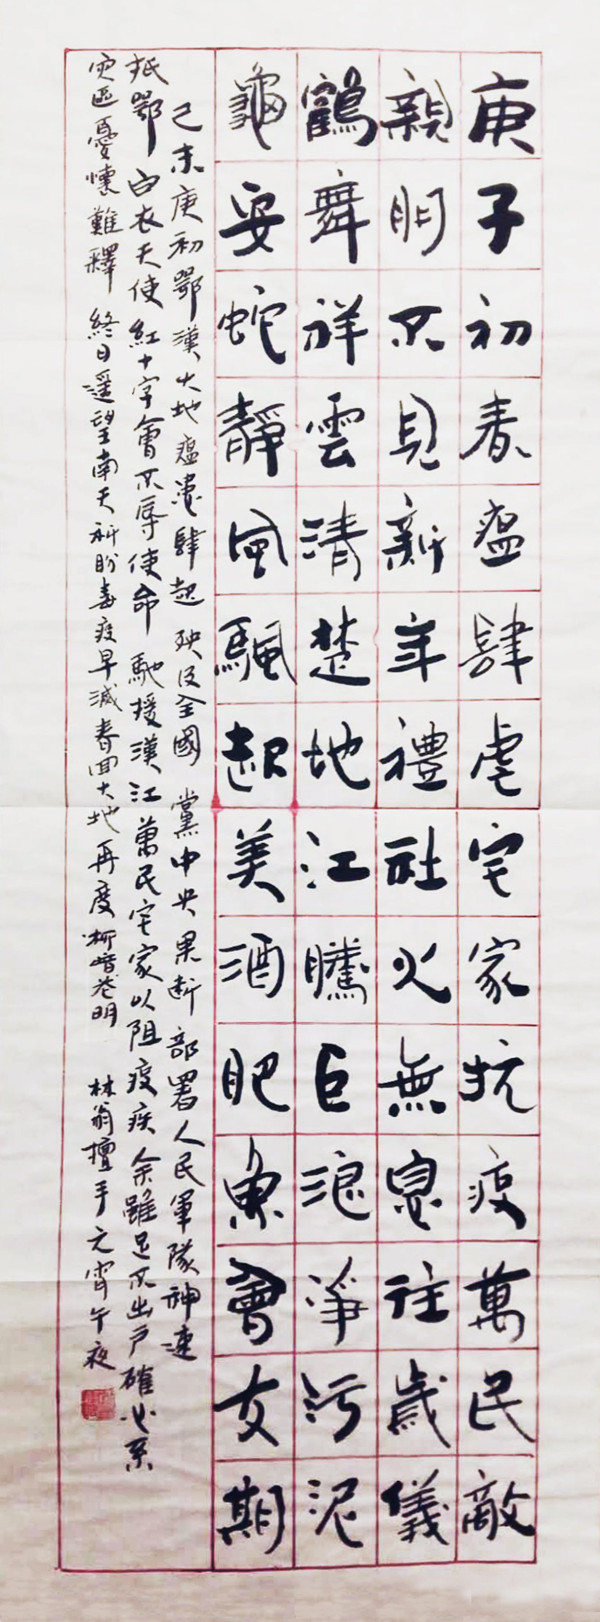 庚子初春瘟肆虐宅家抗疫萬民敵
親朋不見新年禮社火無息往歲儀
鶴舞祥雲清楚地江騰巨浪淨污泥
龜妥蛇靜風颿起美酒肥魚會友期
己未庚初鄂漢大地瘟患肆起殃及全國黨中央果斷部署人民軍隊神速
抵鄂白衣天使紅十字會不辱使命馳援漢江萬民宅家以阻疫疾余雖足不出戶確心系
灾區憂懷難釋終日遥望南天祈盼毒疫早滅春回大地再度柳暗花明林翁擅手元宵午夜